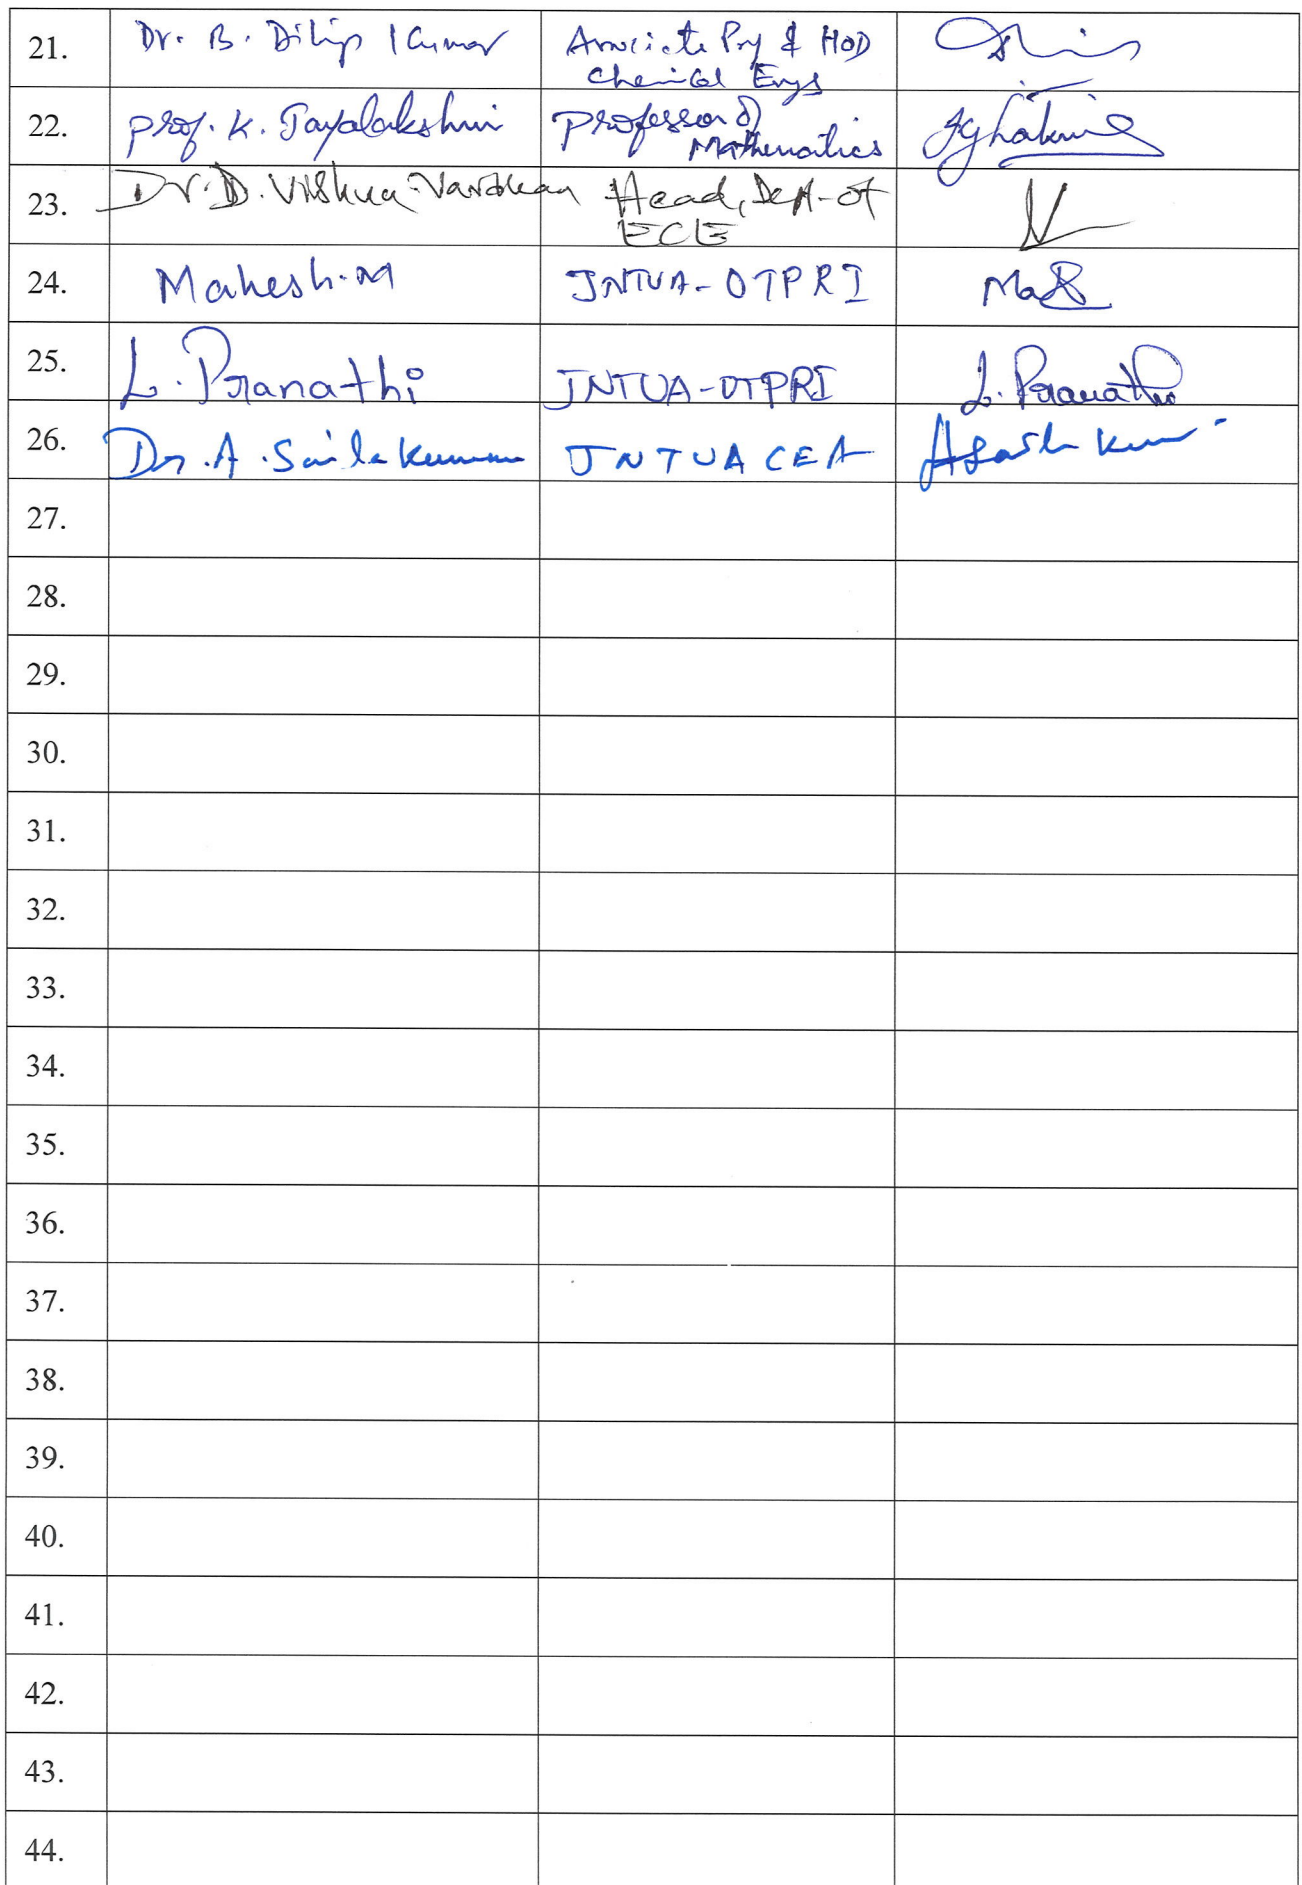 21. Dr. B. Dilip Kumar Associate Prof & HOD
Chemical Engg
22. Prof. K. Jayalakshmi Professor of
Mathematics
23. Dr. D. Vishnu Vardhan Head, Dept. of
ECE
24. Mahesh.M JNTUA-OTPRI
25. L. Pranathi JNTUA-OTPRI L. Pranathi
26. Dr. A. JNTUACEA
27.
28.
29.
30.
31.
32.
33.
34.
35.
36.
37.
38.
39.
40.
41.
42.
43.
44.